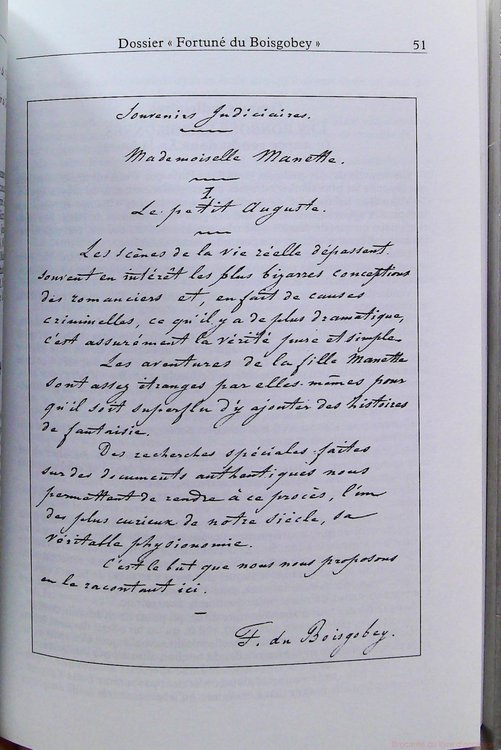 Dossier « Fortuné du Boisgobey » 51
Souvenirs Judiciaires.
Mademoiselle Manette.
1
Le petit Auguste.
Les scènes de la vie réelle dépassent
souvent en intérêt les plus bizarres conceptions
des romanciers et, en fait de causes
criminelles, ce qu'il y a de plus dramatique,
c'est assurément la vérité pure et simple.
Les aventures de la fille Manette
sont assez étranges par elles-mêmes pour
qu'il soit superflu d'y ajouter des histoires
de fantaisie.
Des recherches spéciales faites
sur des documents authentiques nous
permettent de rendre à ce procès, l'un
des plus curieux de notre siècle, sa
véritable physionomie.
C'est le but que nous nous proposons
en le racontant ici.
F. du Boisgobey.